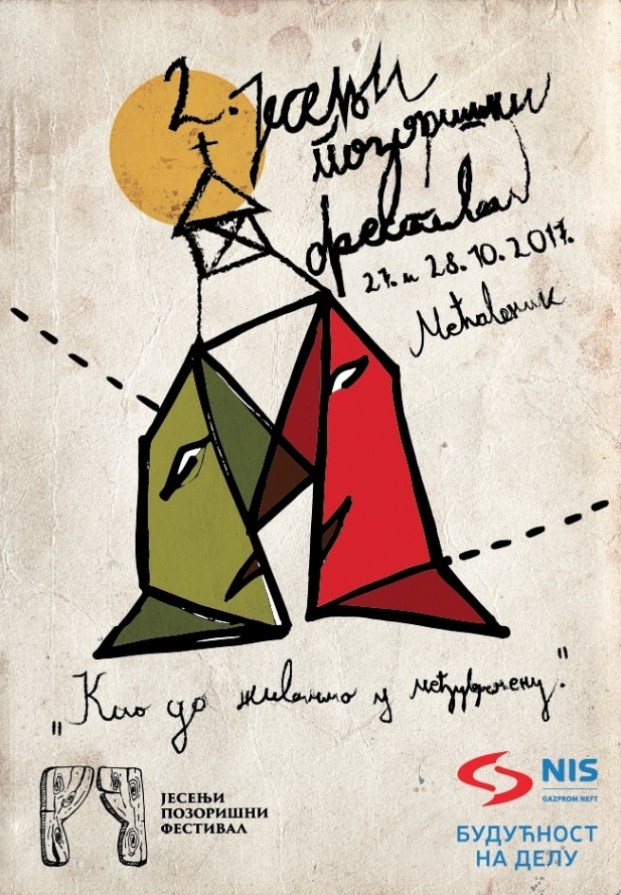 2. јесењи
позоришни
фестивал
27. и 28.10.2017.
Мећавник
„Као да живимо у међувремену."
ЈЕСЕЊИ
ПОЗОРИШНИ
ФЕСТИВАЛ
NIS
GAZPROM NEFT
БУДУЋНОСТ
НА ДЕЛУ